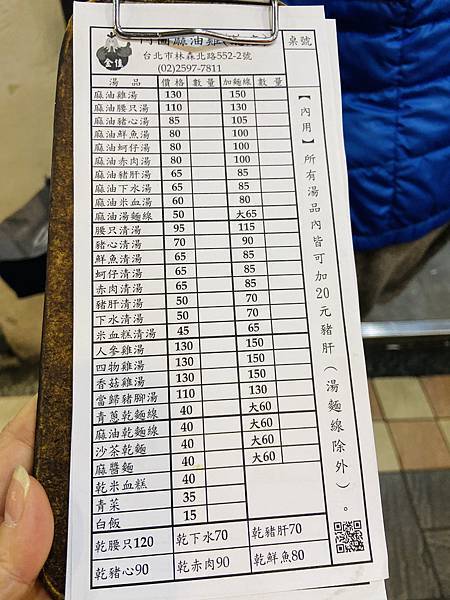 金佳
桌號
台北市林森北路552-2號
(02)2597-7811
湯品 價格 數量 加麵線 數量
麻油雞湯 130 150
麻油腰只湯 110 130
麻油豬心湯 85 105
麻油鮮魚湯 80 100
麻油蚵仔湯 80 100
麻油赤肉湯 80 100
麻油豬肝湯 65 85
麻油下水湯 65 85
麻油米血湯 60 80
麻油湯麵線 50 大65
腰只清湯 95 115
豬心清湯 70 90
鮮魚清湯 65 85
蚵仔清湯 65 85
赤肉清湯 65 85
豬肝清湯 50 70
下水清湯 50 70
米血糕清湯 45 65
人參雞湯 130 150
四物雞湯 130 150
香菇雞湯 130 150
當歸豬腳湯 110 130
青蔥乾麵線 40 大60
麻油乾麵線 40 大60
沙茶乾麵 40 大60
麻醬麵 40 大60
乾米血糕 40
青菜 35
白飯 15
乾腰只120 乾下水70 乾豬肝70
乾豬心90 乾赤肉90 乾鮮魚80
【內用】所有湯品內皆可加20元豬肝(湯麵線除外)。